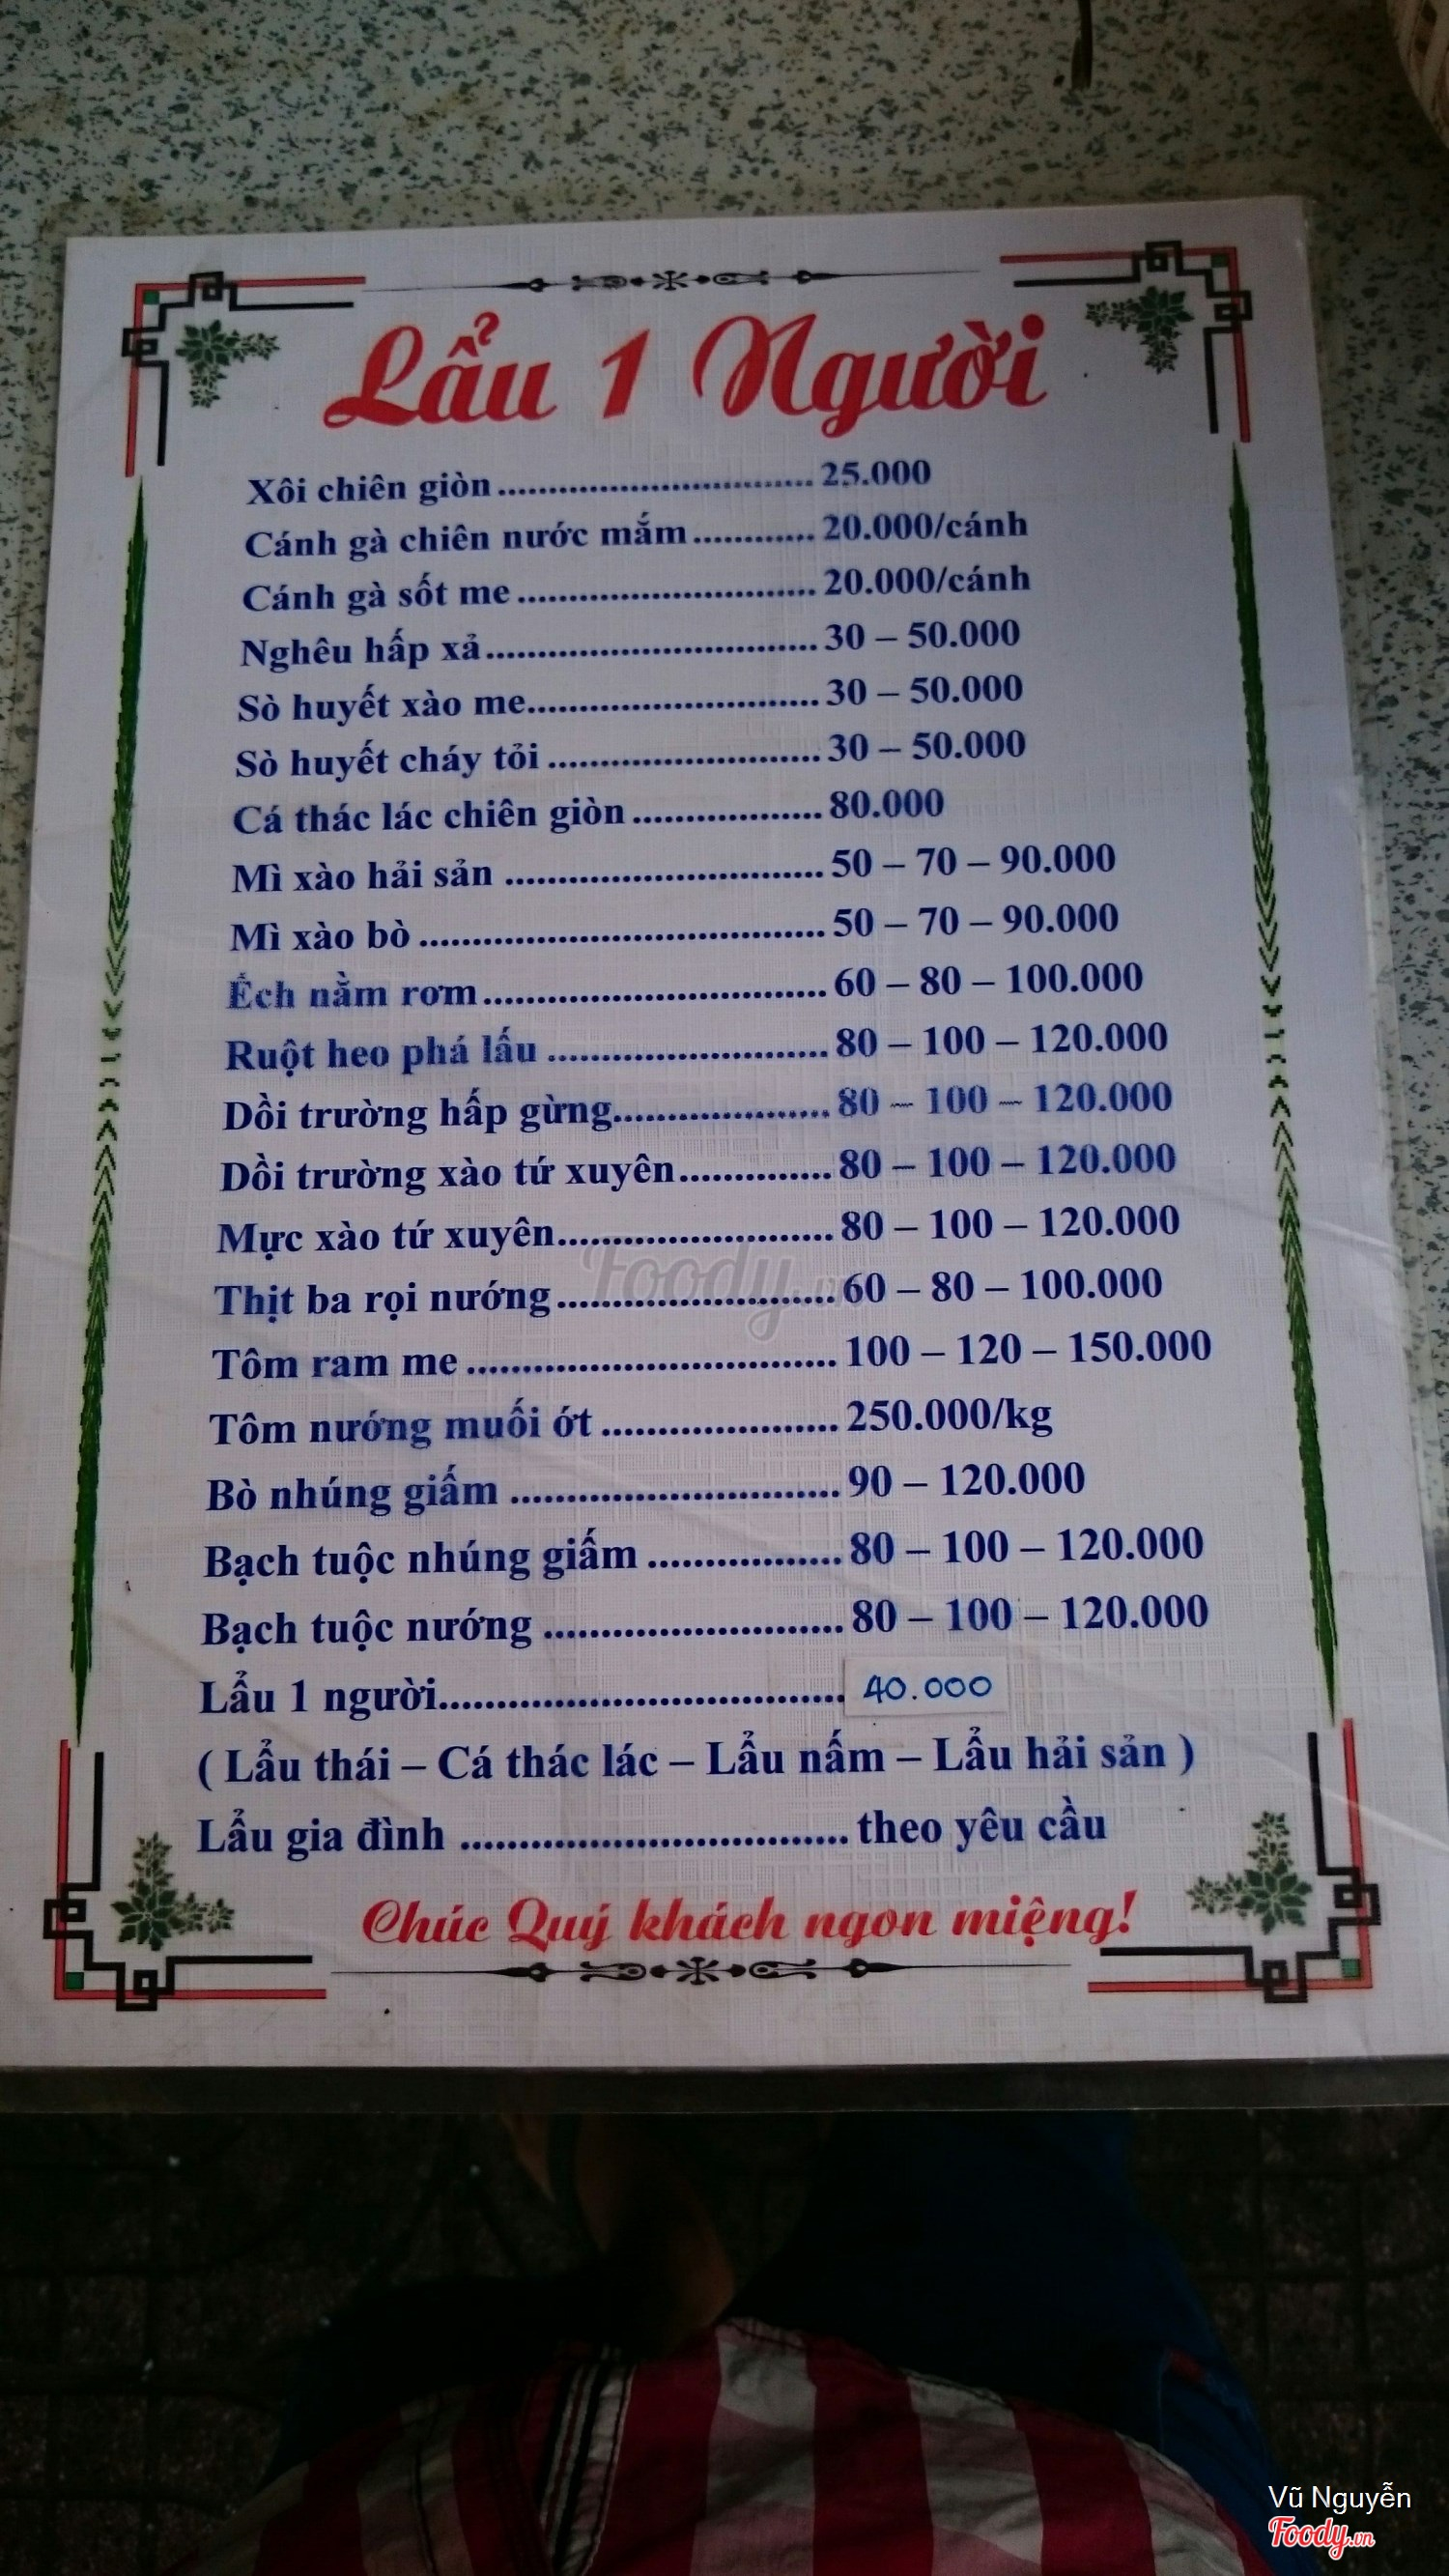 Lẩu 1 Người
Xôi chiên giòn.................................. 25.000
Cánh gà chiên nước mắm............ 20.000/cánh
Cánh gà sốt me............................. 20.000/cánh
Nghêu hấp xả................................ 30 – 50.000
Sò huyết xào me............................ 30 – 50.000
Sò huyết cháy tỏi.......................... 30 – 50.000
Cá thác lác chiên giòn.................. 80.000
Mì xào hải sản .............................. 50 – 70 – 90.000
Mì xào bò ...................................... 50 – 70 – 90.000
Ếch nằm rơm................................ 60 – 80 – 100.000
Ruột heo phá lấu .......................... 80 – 100 – 120.000
Dồi trường hấp gừng..................... 80 – 100 – 120.000
Dồi trường xào tứ xuyên.............. 80 – 100 – 120.000
Mực xào tứ xuyên......................... 80 – 100 – 120.000
Thịt ba rọi nướng......................... 60 – 80 – 100.000
Tôm ram me ................................. 100 – 120 – 150.000
Tôm nướng muối ớt ..................... 250.000/kg
Bò nhúng giấm ............................. 90 – 120.000
Bạch tuộc nhúng giấm ................. 80 – 100 – 120.000
Bạch tuộc nướng .......................... 80 – 100 – 120.000
Lẩu 1 người................................... 40.000
( Lẩu thái – Cá thác lác – Lẩu nấm – Lẩu hải sản )
Lẩu gia đình ................................. theo yêu cầu
Chúc Quý khách ngon miệng!
Foody.vn
Vũ Nguyễn
Foody.vn